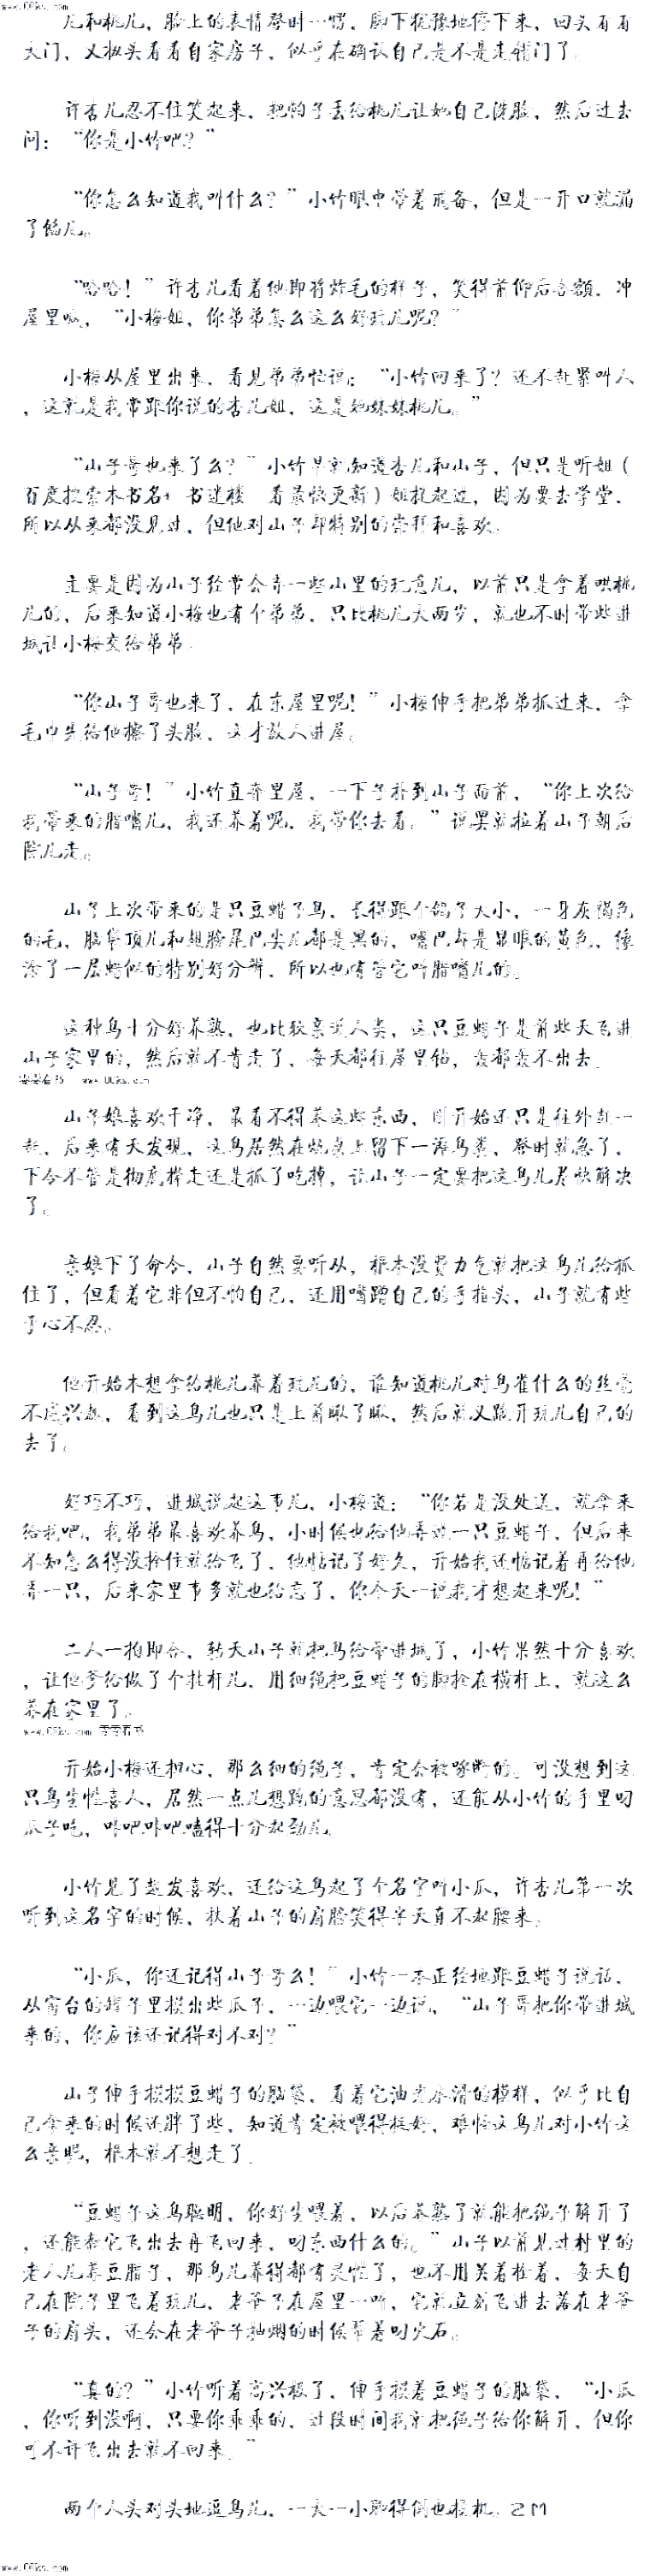 www.00ks.com
儿和桃儿，脸上的表情登时一愣，脚下犹豫地停下来，回头看看
大门，又扭头看看自家房子，似乎在确认自己是不是走错门了。
许杏儿忍不住笑起来，把帕子丢给桃儿让她自己洗脸，然后过去
问：“你是小竹吧？”
“你怎么知道我叫什么？”小竹眼中带着戒备，但是一开口就漏
了馅儿。
“哈哈！”许杏儿看着他即将炸毛的样子，笑得前仰后合额，冲
屋里喊，“小梅姐，你弟弟怎么这么好玩儿呢？”
小梅从屋里出来，看见弟弟忙说：“小竹回来了？还不赶紧叫人
，这就是我常跟你说的杏儿姐，这是她妹妹桃儿。”
“山子哥也来了么？”小竹早就知道杏儿和山子，但只是听姐（
百度搜索本书名+ 书迷楼 看最快更新）姐提起过，因为要去学堂，
所以从来都没见过，但他对山子却特别的崇拜和喜欢。
主要是因为山子经常会弄一些山里的玩意儿，以前只是拿着哄桃
儿的，后来知道小梅也有个弟弟，只比桃儿大两岁，就也不时带些进
城让小梅交给弟弟。
“你山子哥也来了，在东屋里呢！”小梅伸手把弟弟抓过来，拿
毛巾先给他擦了头脸，这才放人进屋。
“山子哥！”小竹直奔里屋，一下子扑到山子面前，“你上次给
我带来的腊嘴儿，我还养着呢，我带你去看。”说罢就拉着山子朝后
院儿走。
山子上次带来的是只豆蜡子鸟，长得跟个鸽子大小，一身灰褐色
的毛，脑袋顶儿和翅膀尾巴尖儿都是黑的，嘴巴却是显眼的黄色，像
涂了一层蜡似的特别好分辨，所以也有管它叫腊嘴儿的。
这种鸟十分好养熟，也比较亲近人类，这只豆蜡子是前些天飞进
山子家里的，然后就不肯走了，每天都往屋里钻，轰都轰不出去。
零零看书 www.00ks.com
山子娘喜欢干净，最看不得养这些东西，刚开始还只是往外赶一
赶，后来有天发现，这鸟居然在炕桌上留下一滩鸟粪，登时就急了，
下令不管是彻底撵走还是抓了吃掉，让山子一定要把这鸟儿尽快解决
了。
亲娘下了命令，山子自然要听从，根本没费力气就把这鸟儿给抓
住了，但看着它非但不怕自己，还用嘴蹭自己的手指头，山子就有些
于心不忍。
他开始本想拿给桃儿养着玩儿的，谁知道桃儿对鸟雀什么的丝毫
不感兴趣，看到这鸟儿也只是上前瞅了瞅，然后就又跑开玩儿自己的
去了。
好巧不巧，进城说起这事儿，小梅道：“你若是没处送，就拿来
给我吧，我弟弟最喜欢养鸟，小时候也给他弄过一只豆蜡子，但后来
不知怎么得没拴住就给飞了，他惦记了好久，开始我还惦记着再给他
弄一只，后来家里事多就也给忘了，你今天一说我才想起来呢！”
二人一拍即合，转天山子就把鸟给带进城了，小竹果然十分喜欢
，让他爹给做了个挂杆儿，用细绳把豆蜡子的脚拴在横杆上，就这么
养在家里了。
www.00ks.com 零零看书
开始小梅还担心，那么细的绳子，肯定会被啄断的。可没想到这
只鸟生性喜人，居然一点儿想跑的意思都没有，还能从小竹的手里叼
瓜子吃，咔吧咔吧嗑得十分起劲儿。
小竹见了越发喜欢，还给这鸟起了个名字叫小瓜，许杏儿第一次
听到这名字的时候，扶着山子的肩膀笑得半天直不起腰来。
“小瓜，你还记得山子哥么！”小竹一本正经地跟豆蜡子说话，
从窗台的罐子里摸出些瓜子，一边喂它一边说，“山子哥把你带进城
来的，你应该还记得对不对？”
山子伸手摸摸豆蜡子的脑袋，看着它油光水滑的模样，似乎比自
己拿来的时候还胖了些，知道肯定被喂得挺好，难怪这鸟儿对小竹这
么亲昵，根本就不想走了。
“豆蜡子这鸟聪明，你好生喂着，以后养熟了就能把绳子解开了
，还能让它飞出去再飞回来，叼东西什么的。”山子以前见过村里的
老人儿养豆腊子，那鸟儿养得都有灵性了，也不用关着拴着，每天自
己在院子里飞着玩儿，老爷子在屋里一喊，它就立刻飞进去落在老爷
子的肩头，还会在老爷子抽烟的时候帮着叼火石。
“真的？”小竹听着高兴极了，伸手摸着豆蜡子的脑袋，“小瓜
，你听到没啊，只要你乖乖的，过段时间我就把绳子给你解开，但你
可不许飞出去就不回来。”
两个人头对头地逗鸟儿，一大一小聊得倒也投机。ZM
www.00ks.com